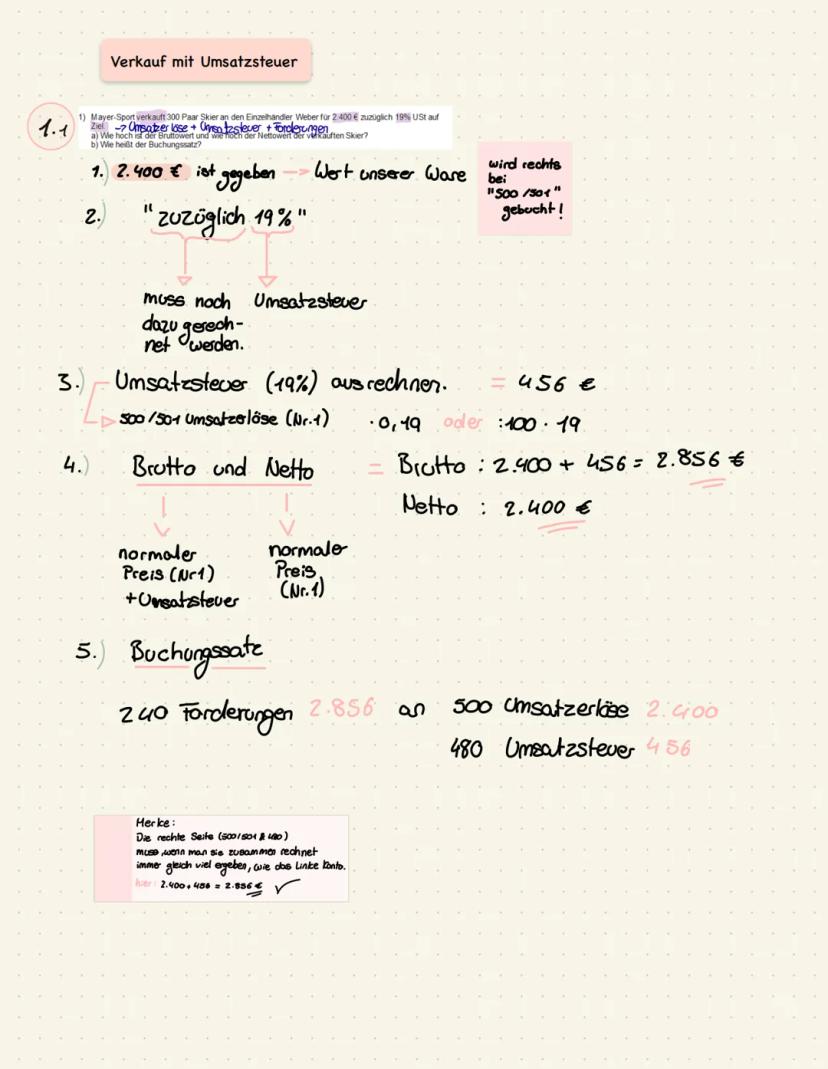 Verkauf mit Umsatzsteuer
1.1
1) Mayer-Sport verkauft 300 Paar Skier an den Einzelhändler Weber für 2.400 € zuzüglich 19% USt auf
Ziel. -> Umsatzerlöse + Umsatzsteuer + Forderungen
a) Wie hoch ist der Bruttowert und wie hoch der Nettowert der verkauften Skier?
b) Wie heißt der Buchungssatz?
1.) 2.400 € ist gegeben -> Wert unserer Ware
wird rechts
bei
"500/501"
gebucht!
2.) "zuzüglich 19%"
muss noch Umsatzsteuer
dazu gerech-
net werden.
3.) Umsatzsteuer (19%) ausrechnen. = 456 €
500/501 Umsatzerlöse (Nr.1) ·0,19 oder :100 · 19
4.) Brutto und Netto = Brutto : 2.400 + 456 = 2.856 €
Netto : 2.400 €
normaler normaler
Preis (Nr1) Preis
+Umsatzsteuer (Nr.1)
5.) Buchungssatz
240 Forderungen 2.856 an 500 Umsatzerlöse 2.400
480 Umsatzsteuer 456
Merke:
Die rechte Seite (500/501 & 480)
muss, wenn man sie zusammen rechnet
immer gleich viel ergeben, wie das Linke Konto.
hier: 2.400 + 456 = 2.856 € ✓